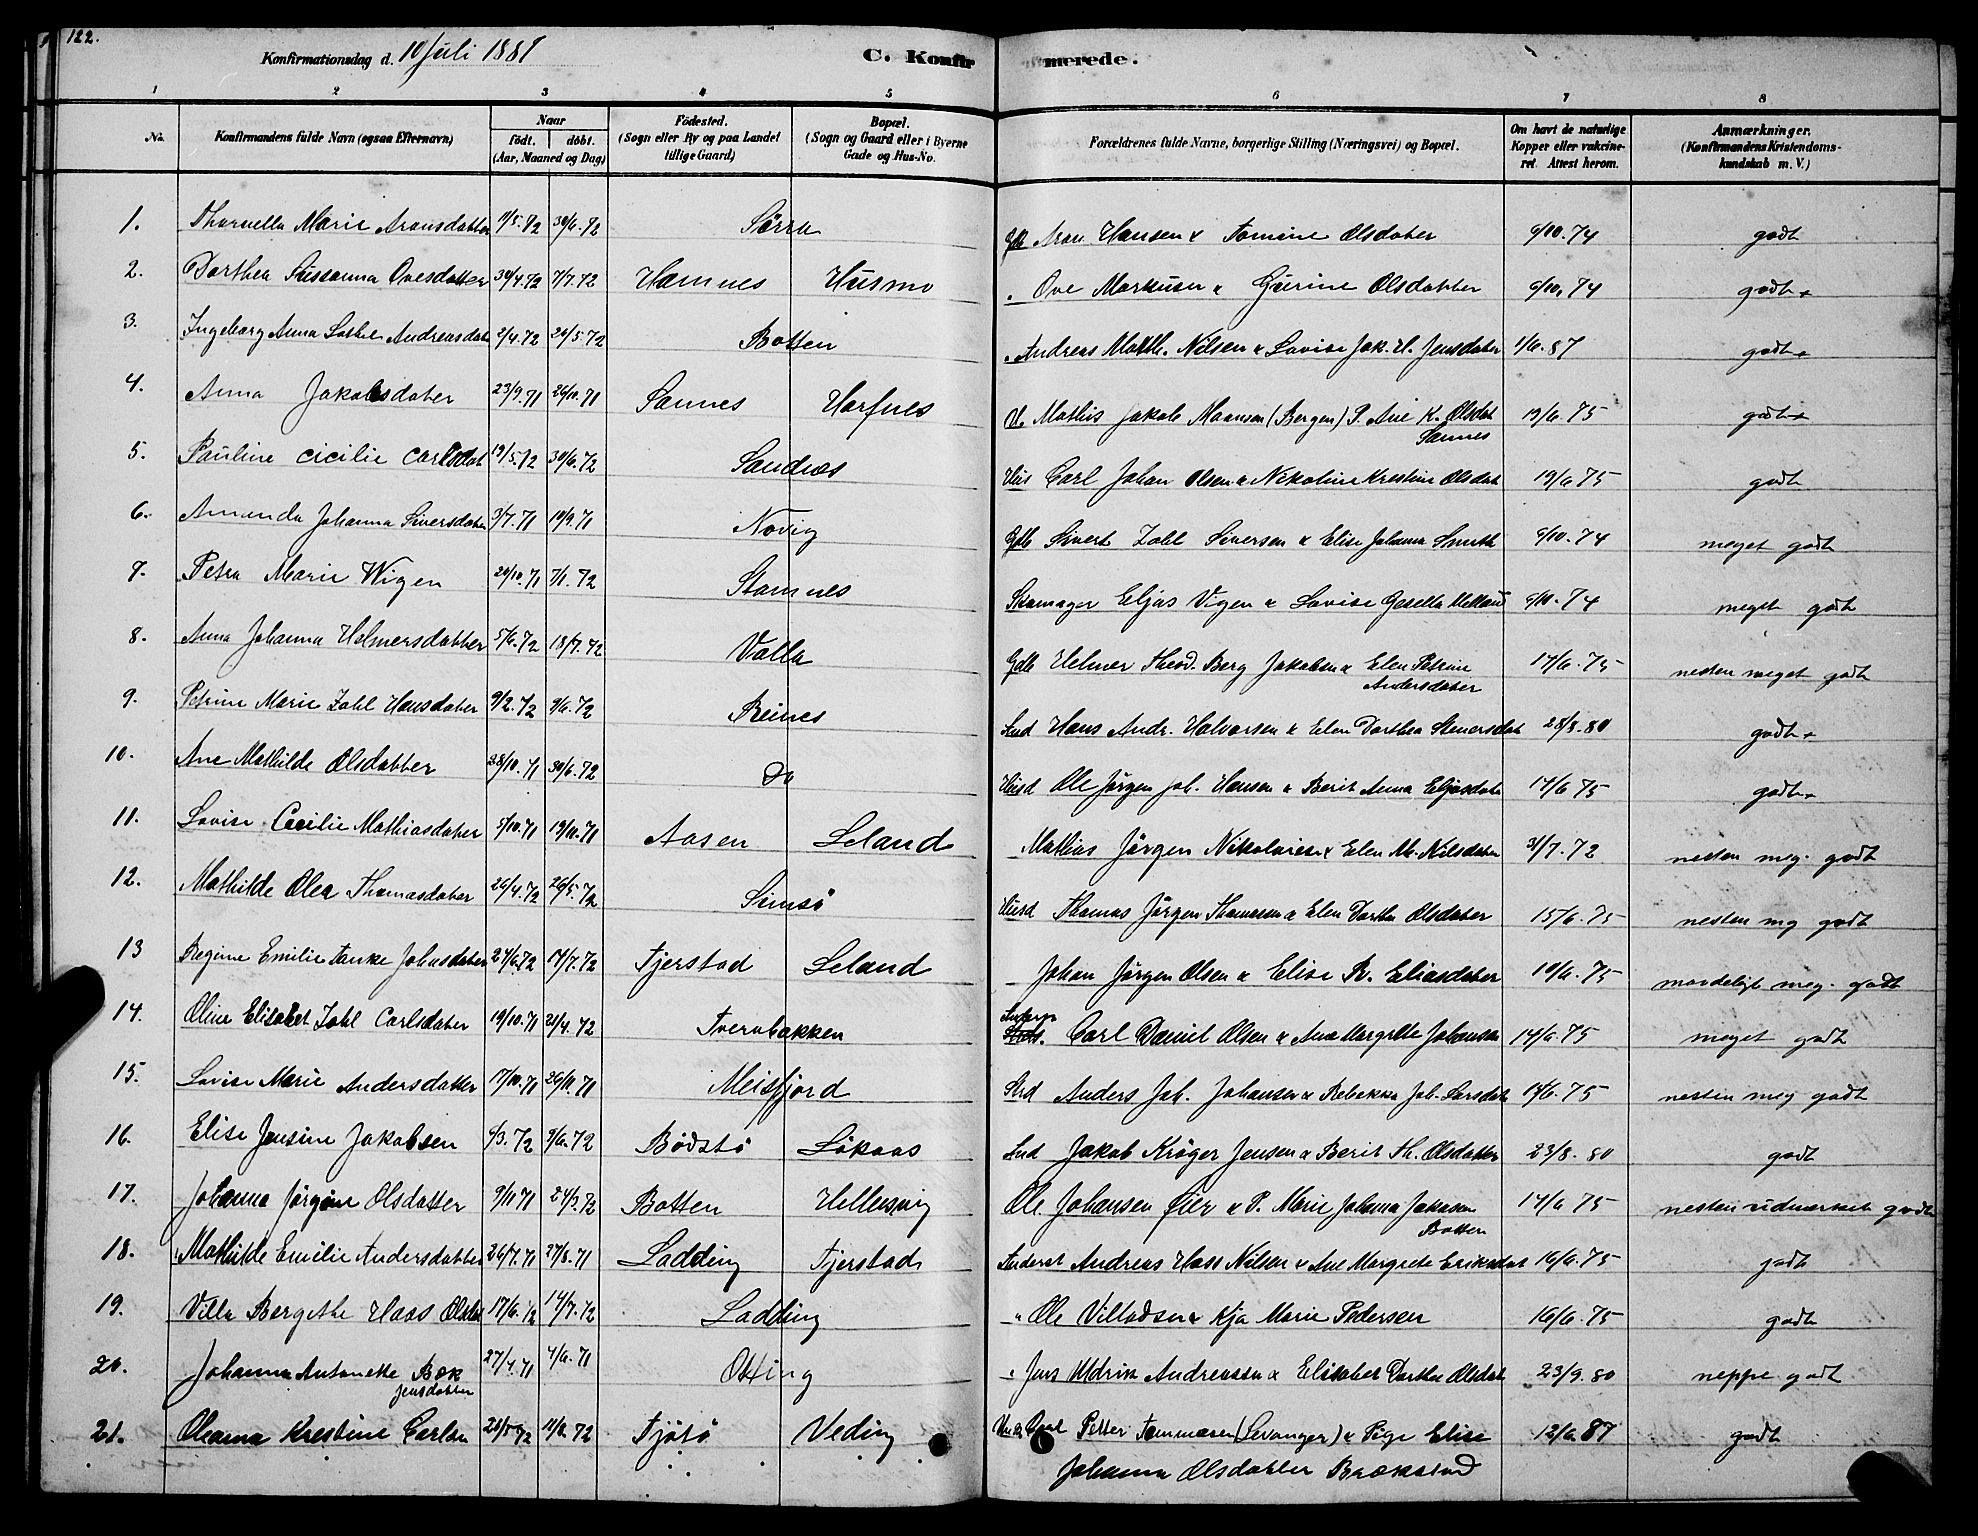 122.
Konfirmationsdag d. 10 Juli 1887
C. Konfirmerede.
1 2 3 4 5 6 7 8
No. Konfirmandens fulde Navn (ogsaa Efternavn) Naar født. døbt. (Aar, Maaned og Dag) Fødested. (Sogn eller By og paa Landet tillige Gaard) Bopæl. (Sogn og Gaard eller i Byerne Gade og Hus-No. Forældrenes fulde Navne, borgerlige Stilling (Næringsvei) og Bopæl. Om havt de naturlige Kopper eller vakcineret. Attest herom. Anmærkninger. (Konfirmandens Kristendomskundskab m. V.)
1. Marie Aronsdatter 30/6.72 Sørra Aron Hansen & Tomine Olsdater 6/10.74 godt
2. Dorthea Sussanna Ovesdatter 30/4.72 7/7.72 Hamnes Husmo Ove Markusen & Gurine Olsdatter 6/10.74 godt
3. Ingeborg Anna Andreasdat 2/4.72 20/5.72 Botten Andreas Matth. Nilsen & Lovise Jak. H. Jensdater 1/6.87 godt
4. Anna Jakobsdater 23/9.71 26/10.71 Sannes Harfnes Mathis Jakob Moansen (Bergen) P. Ane K. Olsdat Sannes 19/6.75 godt
5. Pauline Cicilie Carlsdat 19/5.72 30/6.72 Sandnes Hus Carl Johan Olsen & Nikoline Krestine Olsdat 19/6 75 godt
6. Amanda Johanna Siversdater 3/7.71 10/9.71 Novig Gdb Sivert Zahl Siversen & Elise Johanna Smith 6/10.74 meget godt
7. Petra Marie Wigen 20/10.71 7/1.72 Stamnes Skomager Eljas Vigen & Lovise Gesella 6/10.74 meget godt
8. Anna Johanna Helmersdatter 5/6.72 18/7.72 Valla Gdb Helmer Theod. Berg Jakobsen & Elen Petrine Andersdater 17/6.75 nesten meget godt
9. Petrine Marie Zahl Hansdater 9/2.72 9/6.72 Reines Ind Hans Andr. Halvorsen & Elen Dorthea Stenersdat 28/8.80 godt
10. Ane Mathilde Olsdatter 28/10.71 30/6.72 Do Husd Ole Jørgen Joh. Hansen & Berit Anna Eljasdat 17/6 75 godt
11. Lovise Cecilie Mathiasdater 5/10.71 19/11.71 Aasen Leland Mathias Jørgen Nikolaisen & Elen M. Nilsdater 31/7.72 nesten meg. godt
12. Mathilde Olea Thomasdater 26/4.72 26/5.72 Simsø Husd Thomas Jørgen Thomassen & Elen Dorthea Olsdater 15/6.75 nesten mg godt
13 Regine Emilie Tanke Johnsdater 24/6.72 14/7.72 Fjerstad Leland Johan Jørgen Olsen & Elise R. Eliasdater 10/6.75 maadeligt meg. godt
14. Oline Elisabet Zahl Carlsdater 19/10.71 21/4.72 Tverabakken Carl Daniel Olsen & Ane Margrete Johansen 14/6.75 meget godt
15. Lovise Marie Andersdatter 17/10.71 26/11.71 Meisfjord Anders Joh. Johansen & Rebekka Joh. Larsdat 14/6.75 nesten meg godt
16. Elise Jensine Jakobsen 6/3.72 9/6.72 Bødstø Løkaas Ind Jakob Krøger Jensen & Berit Th. Olsdatter 23/8.80 godt
17. Johanna Jørgine Olsdatter 9/11 71 24/3.72 Botten Hellesvig Ole Johansen Øier & P. Marie Johanna Jakobsen Botten 17/6 75 nesten udmærket godt
18. Mathilde Emilie Andersdatter 26/7.71 27/8.71 Ladding Fjerstad Andreas Hass Nilsen & Ane Margrete Eriksdat 16/6.75 godt
19. Villa Bergithe Haas Olsdat 17/6.72 14/7.72 Ladding " Ole Villadsen & Kja Marie Pedersen 16/6.75 godt
20. Johanna Antonette Bæk Jensdatter 27/4.71 4/6.71 Otting " Jens Uldrik Andreassen & Elisabet Dorthea Olsdat 23/9.80 neppe godt
21. Oleana Kristine Carlsen 26/5.72 11/8.72 Tjøtø Veding Petter Tommasen (Levanger) & Pige Elise Johanna Olsdatter Brækstad 12/6.87 godt